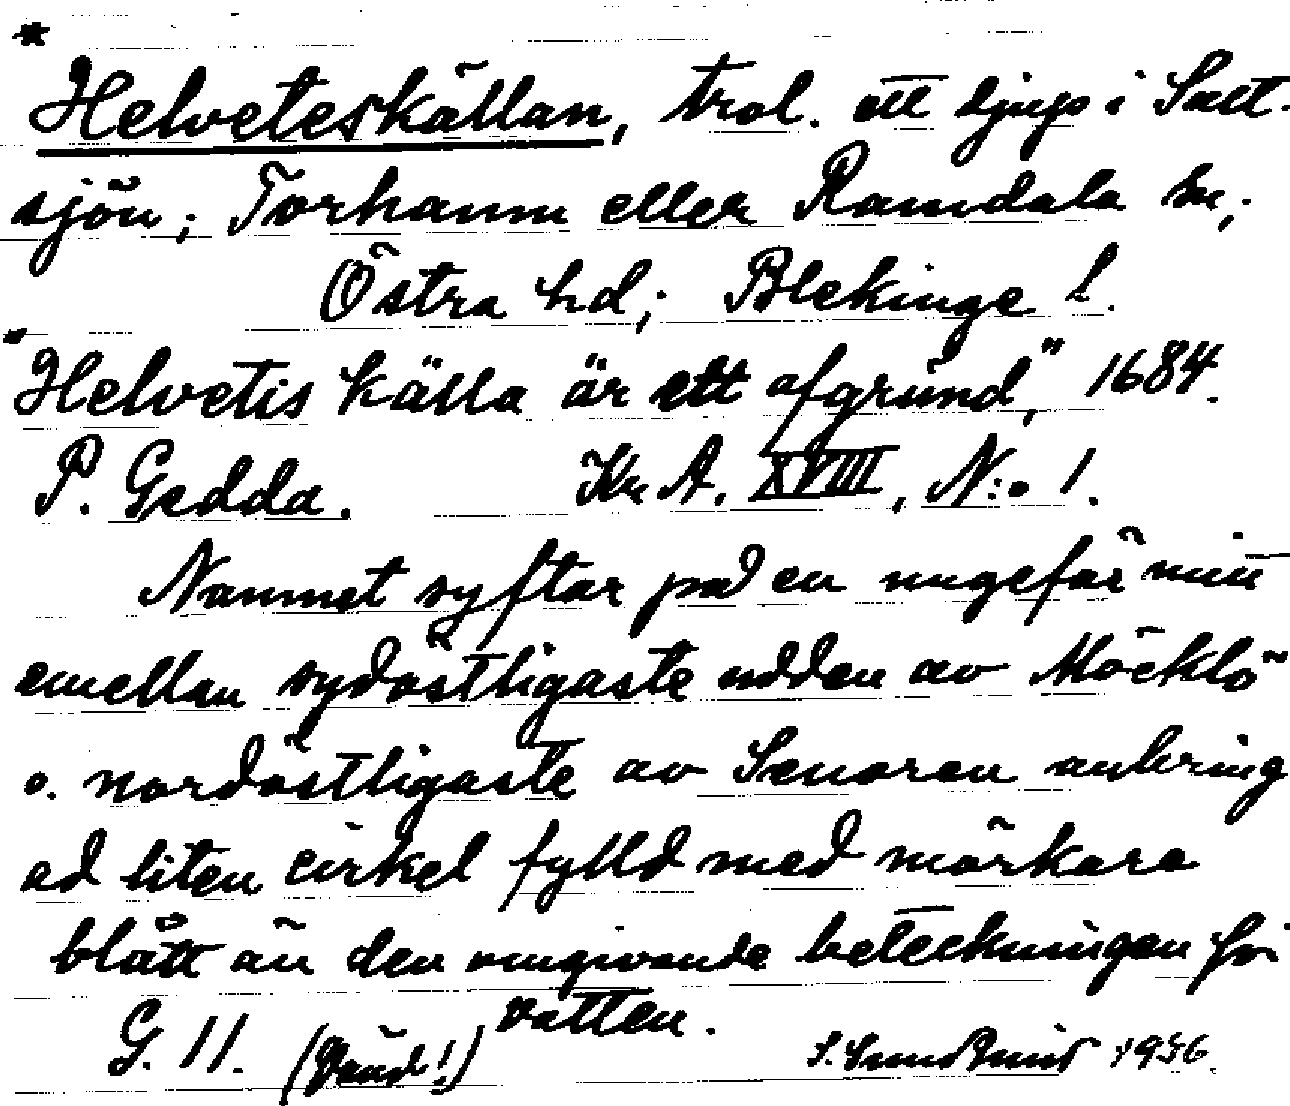 *
Helveteskällan, trol. ett djup i Salt-
sjön; Torhamn eller Ramdala sn;
Östra hd; Blekinge l.
"Helvetis källa är ett afgrund," 1684.
P. Gedda. Kr A. XVIII, N:o 1.
Namnet syftar på en ungefär mitt
emellan sydöstligaste udden av Möcklö
o. nordöstligaste av Senoren anbring
ad liten cirkel fylld med mörkare
blått än den omgivande beteckningen för
vatten.
G. 11. (Vänd!) S. 1936.